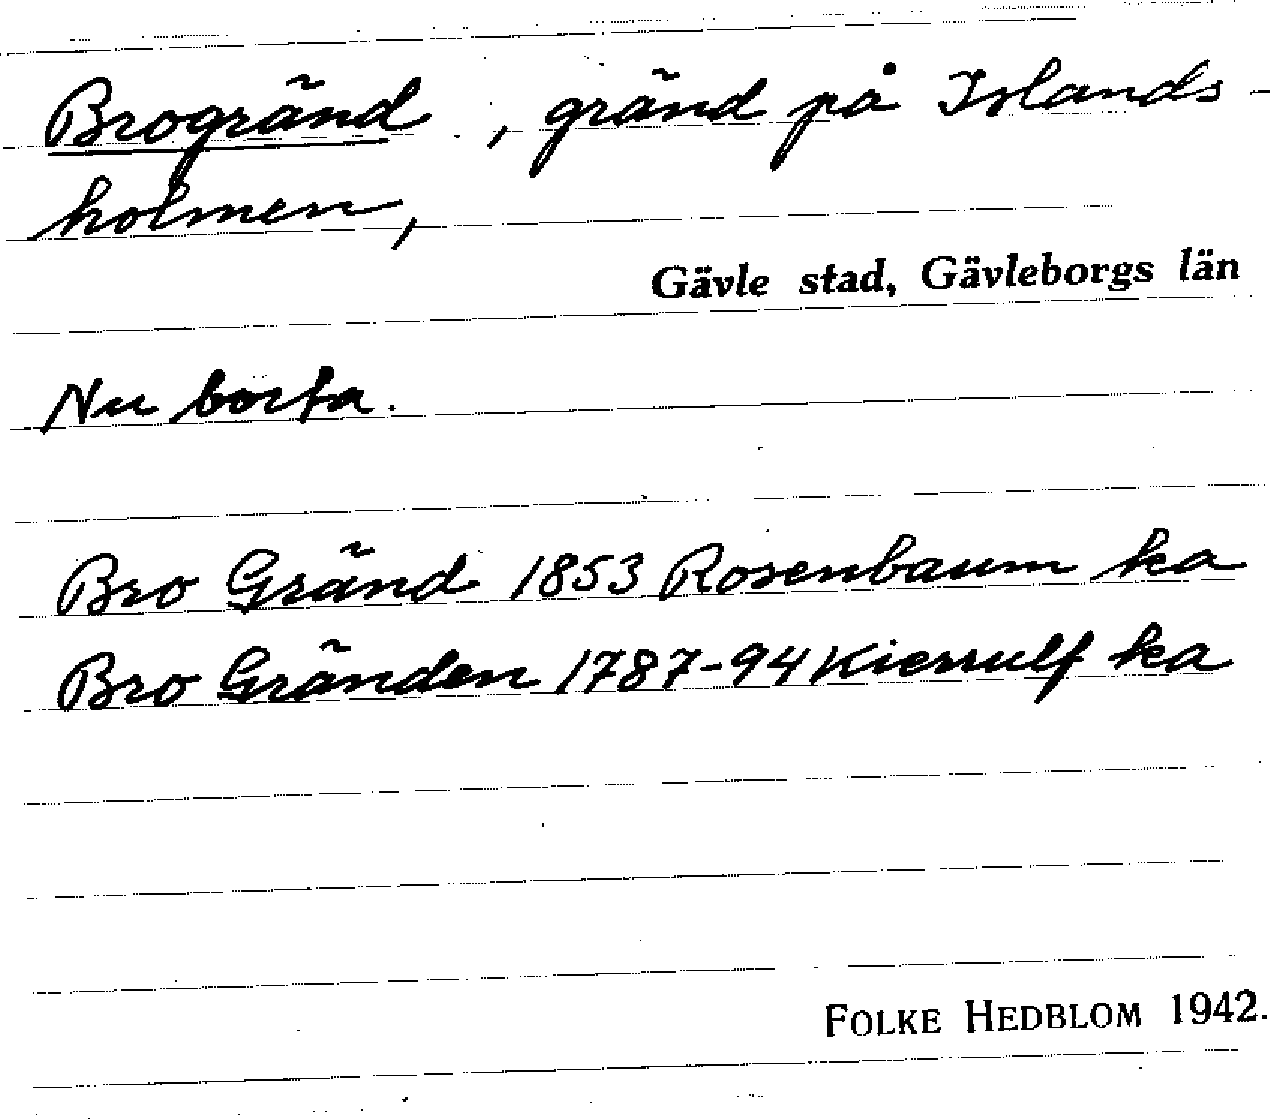 Brogränd, gränd på Islands-
holmen,
Gävle stad, Gävleborgs län
Nu borta.
Bro Gränd 1853 Rosenbaum ka
Bro Gränden 1787-94 Kierrulf ka
FOLKE HEDBLOM 1942.